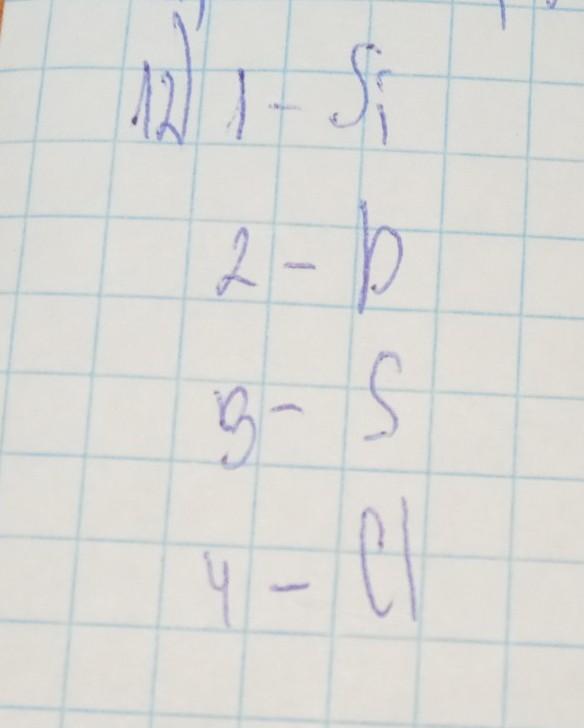 12) 1 - Si
2 - P
3 - S
4 - Cl